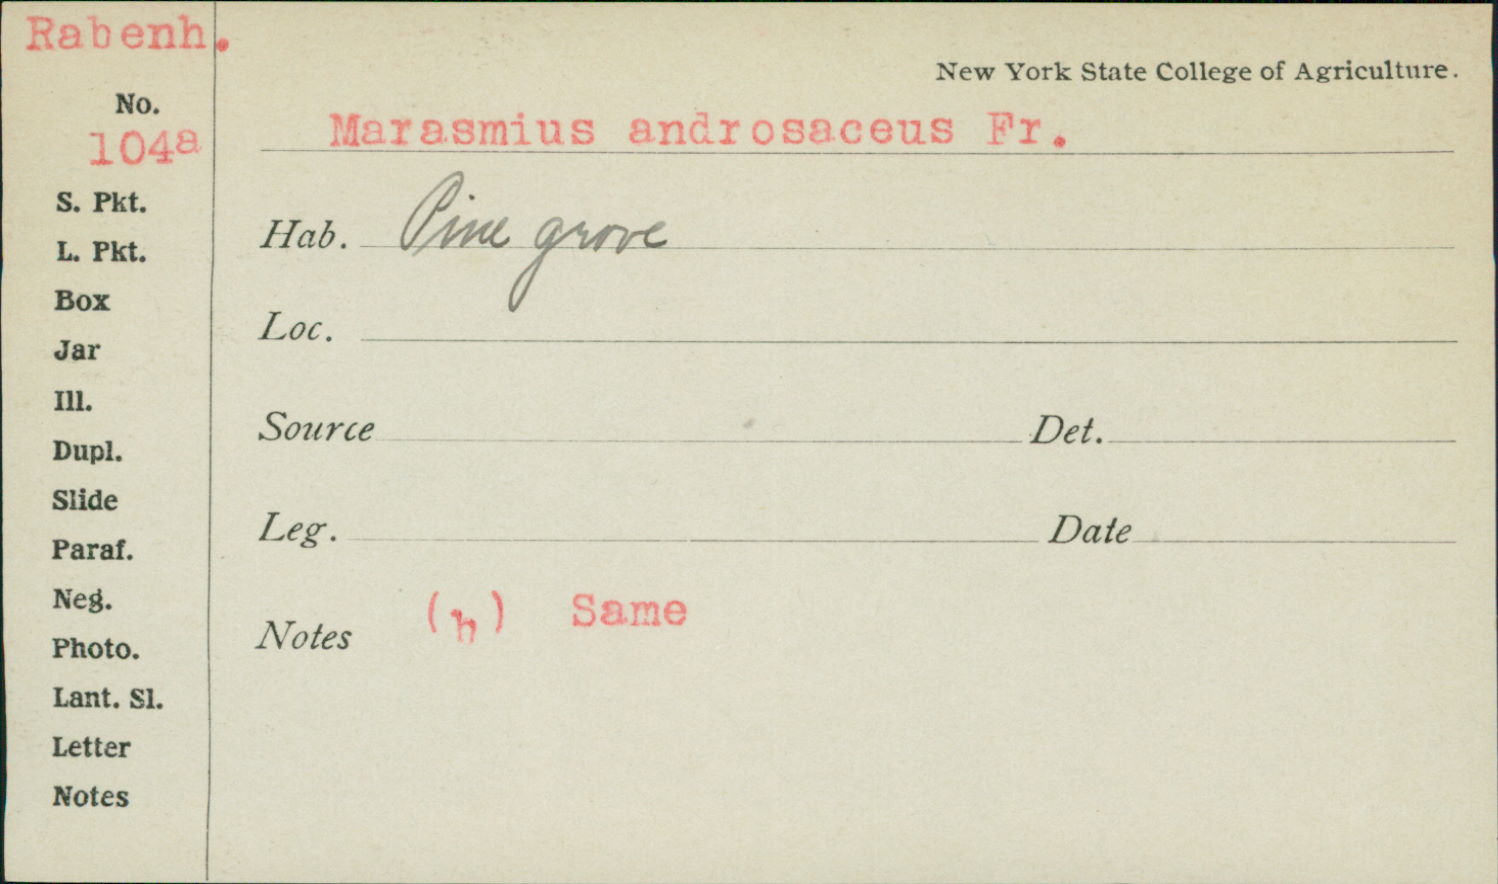 Rabenh.
New York State College of Agriculture.
No.
104a
Marasmius androsaceus Fr.
S. Pkt.
L. Pkt.
Box
Jar
Ill.
Dupl.
Slide
Paraf.
Neg.
Photo.
Lant. Sl.
Letter
Notes
Hab. Pine grove
Loc.
Source Det.
Leg. Date
Notes (h) Same